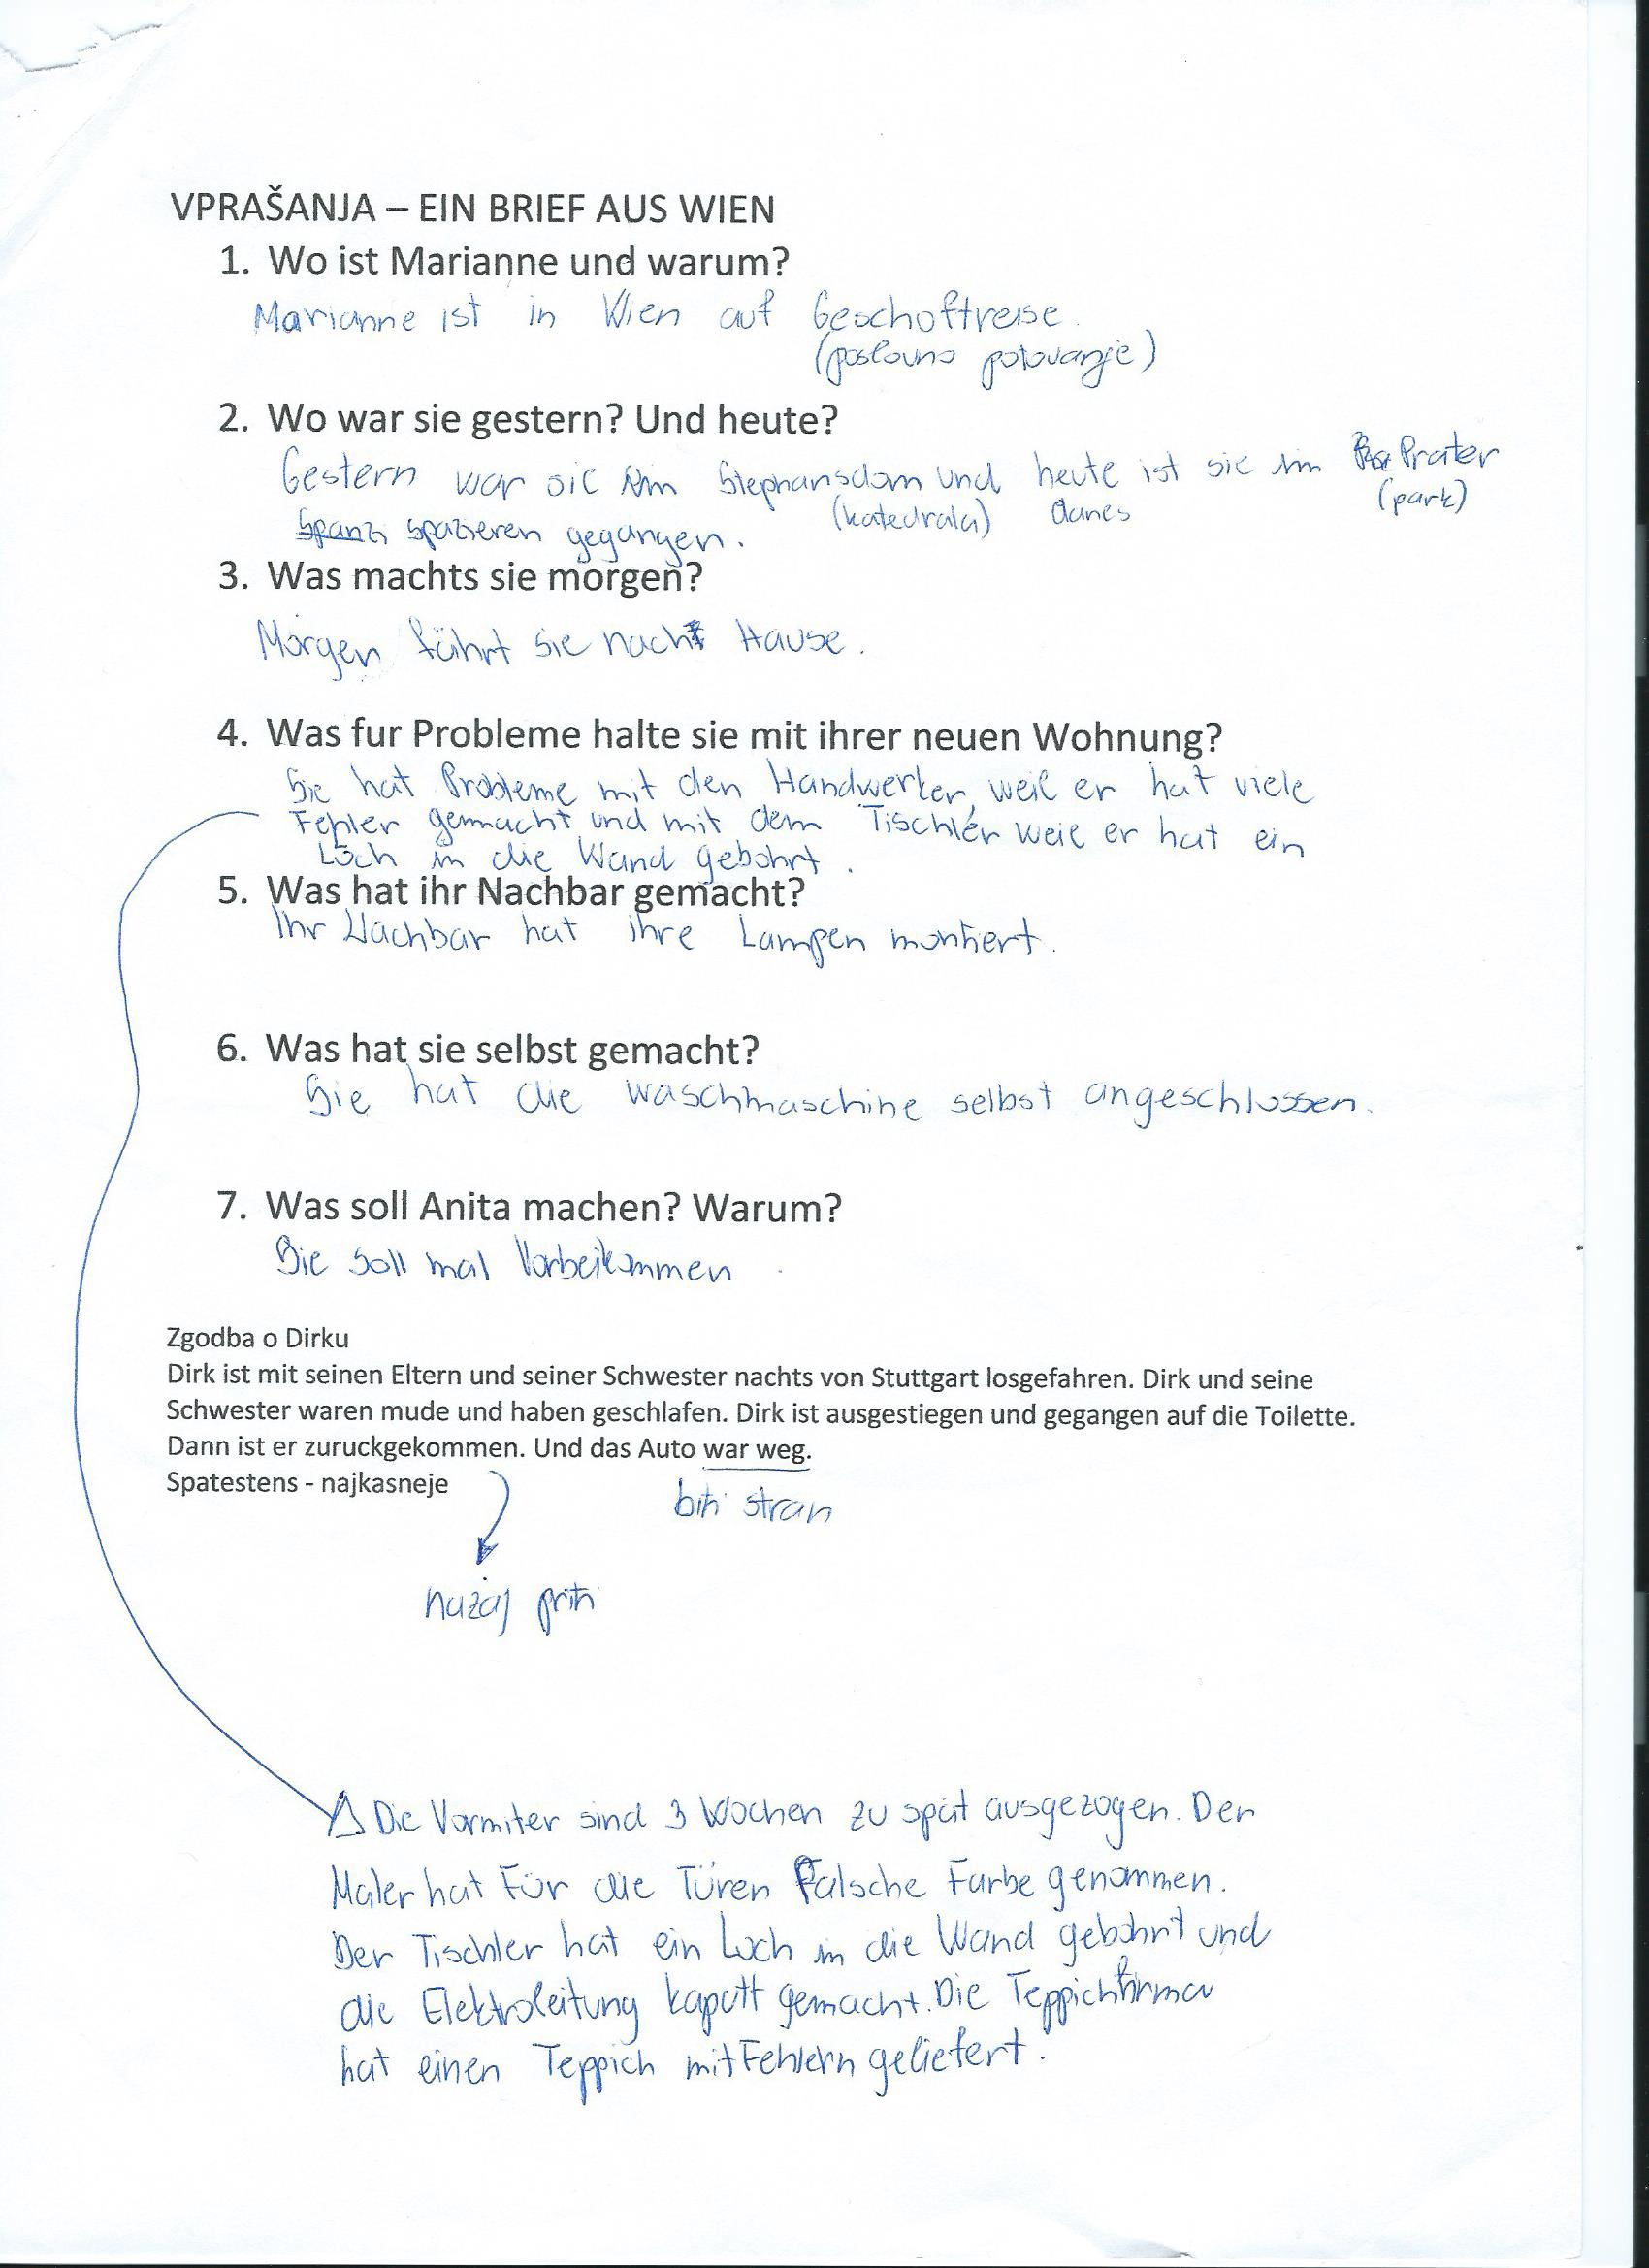 VPRAŠANJA – EIN BRIEF AUS WIEN
1. Wo ist Marianne und warum?
Marianne ist in Wien auf Geschoftreise.
(poslovno potovanje)
2. Wo war sie gestern? Und heute?
Gestern war sie im Stephansdom und heute ist sie im Prater
(katedrala) danes (park)
spazieren gegangen.
3. Was machts sie morgen?
Morgen fährt sie nach Hause.
4. Was fur Probleme halte sie mit ihrer neuen Wohnung?
Sie hat Probleme mit den Handwerker, weil er hat viele
Fehler gemacht und mit dem Tischler weil er hat ein
Loch in die Wand gebohrt.
5. Was hat ihr Nachbar gemacht?
Ihr Nachbar hat ihre Lampen montiert.
6. Was hat sie selbst gemacht?
Sie hat die Waschmaschine selbst angeschlossen.
7. Was soll Anita machen? Warum?
Sie soll mal Vorbeikommen.
Zgodba o Dirku
Dirk ist mit seinen Eltern und seiner Schwester nachts von Stuttgart losgefahren. Dirk und seine
Schwester waren mude und haben geschlafen. Dirk ist ausgestiegen und gegangen auf die Toilette.
Dann ist er zuruckgekommen. Und das Auto war weg.
Spatestens - najkasneje
biti stran
nazaj priti
Die Vormiter sind 3 Wochen zu spät ausgezogen. Der
Maler hat Für die Türen Falsche Farbe genommen.
Der Tischler hat ein Loch in die Wand gebohrt und
die Elektroleitung kaputt gemacht. Die Teppichfirma
hat einen Teppich mit Fehlern geliefert.